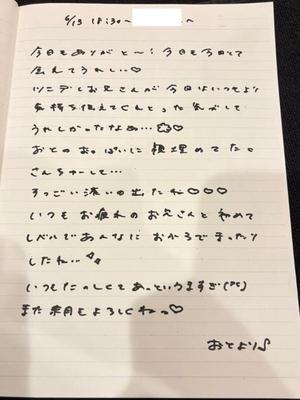 6/13 18:30〜　　　　〜
今日もありがと〜! 今日も今日とて
会えてうれしい♡
ツンデレお兄さんが今日はいつもより
気持ち伝えてくんとった気がして
うれしかったなぁ…♡
おとのおっぱいに顔埋めてた。
さんちゅーして…
すっごい濃いの出たね♡♡♡
いつもお疲れのお兄さんと初めて
レベルであんなにおふろでまったり
したね…
いつもたのしくてあっというますぎ
また来月もよろしくねっ♡
おとより♪